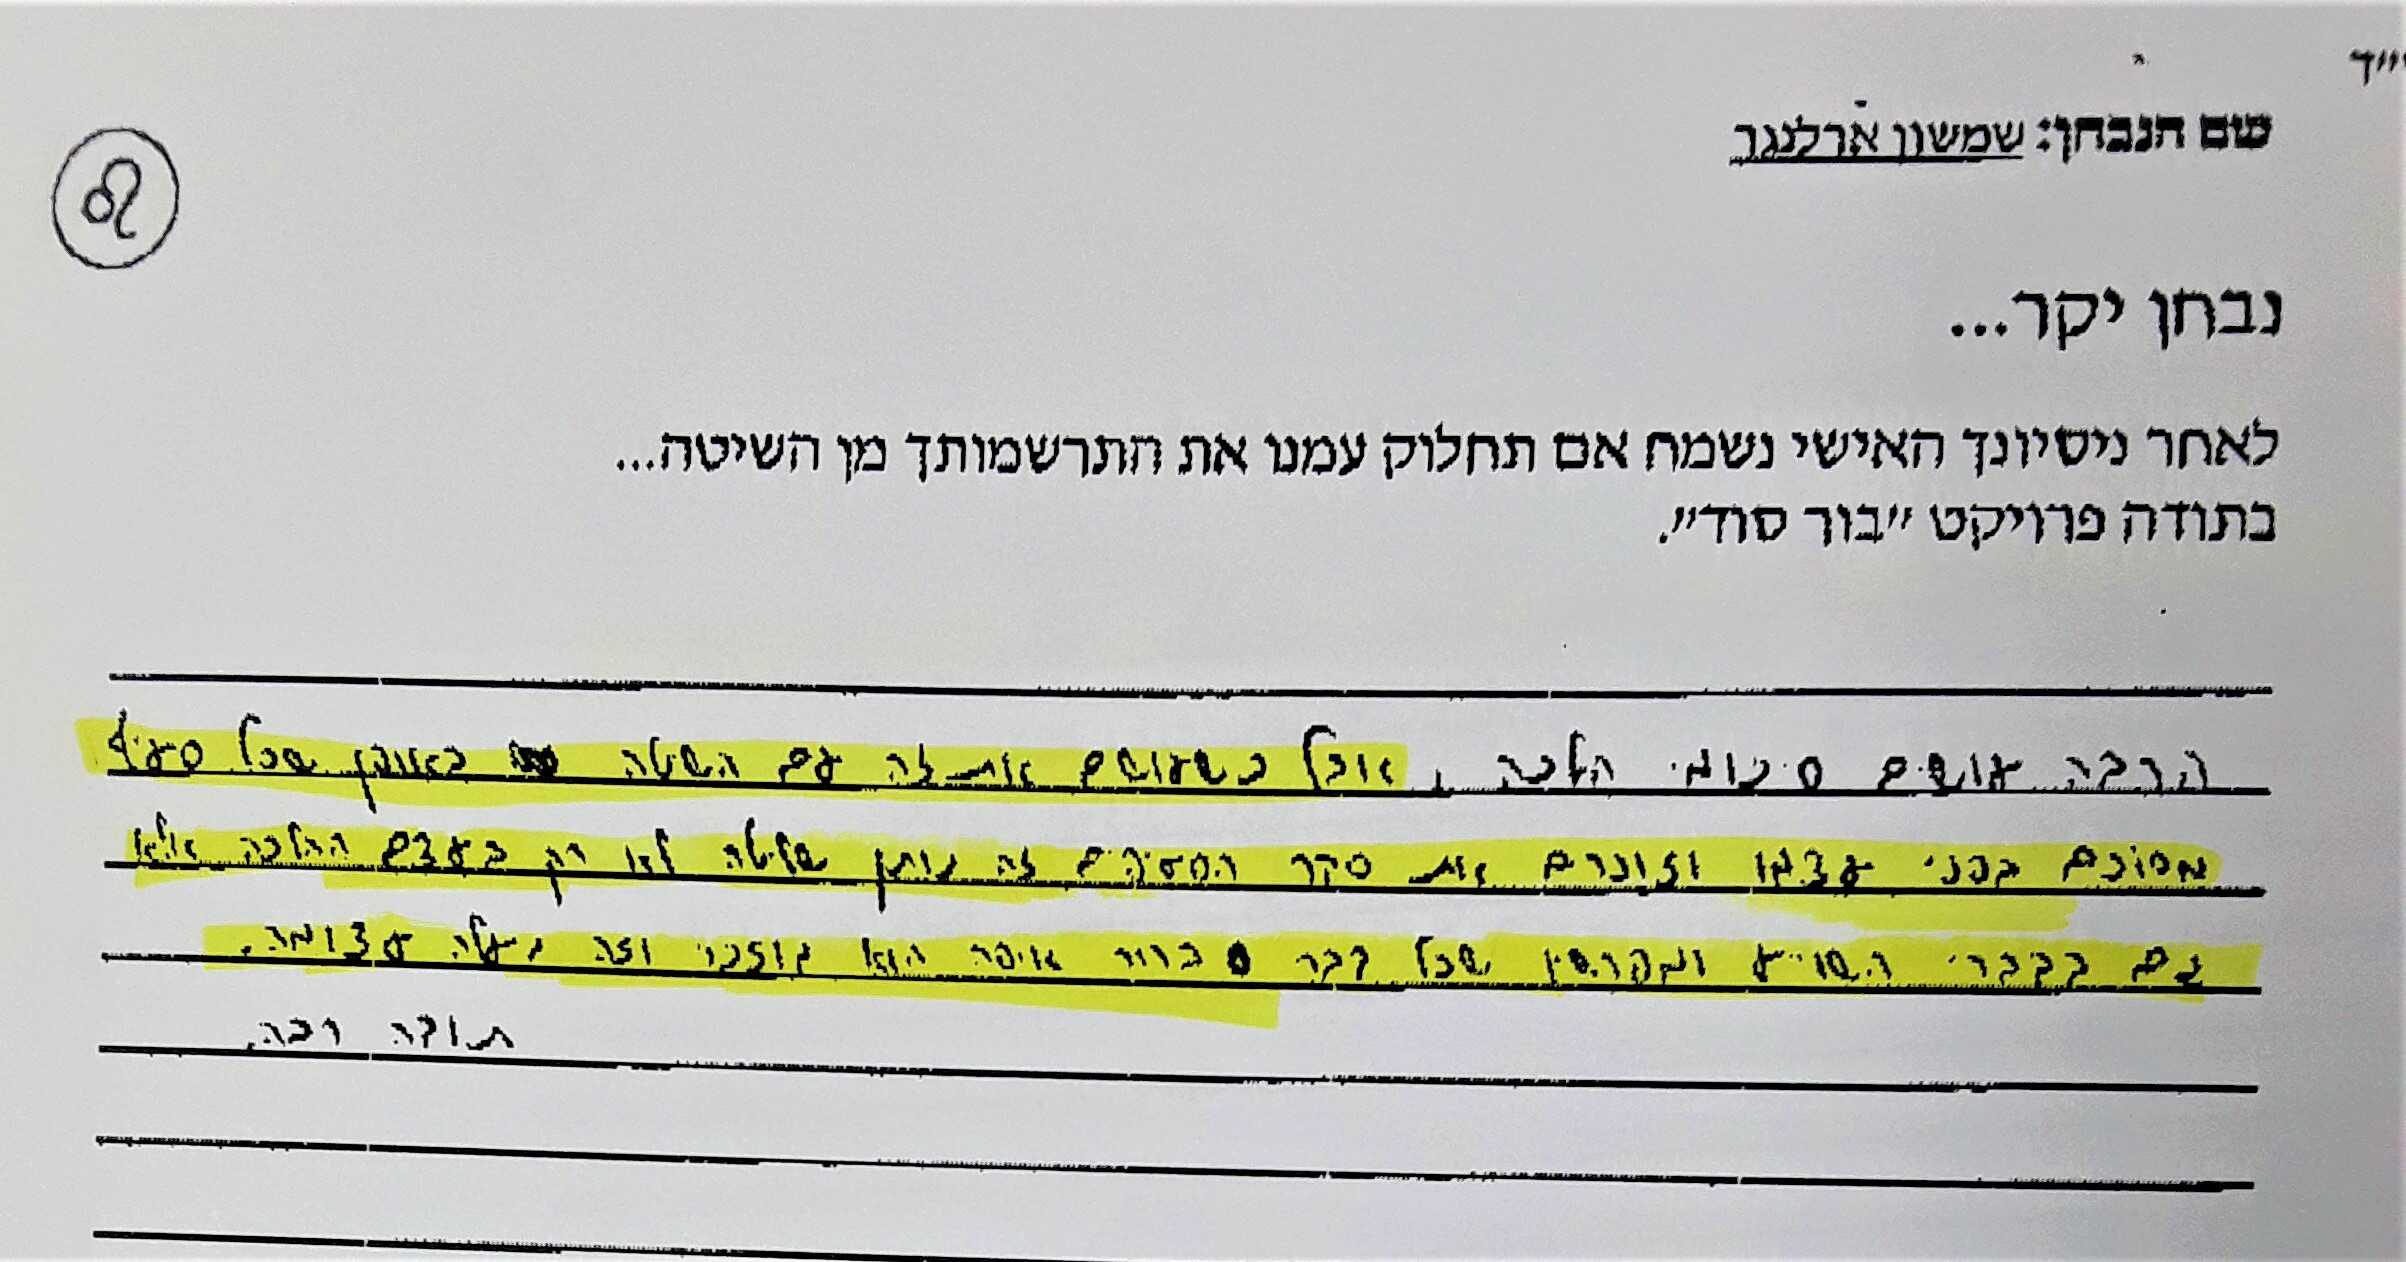 שם הנבחן: שמשון ארלנגר
נבחן יקר...
לאחר ניסיונך האישי נשמח אם תחלוק עמנו את התרשמותך מן השיטה...
בתודה פרויקט "בור סוד".
הרבה עושים סיכומי הלכה, אבל כשעושים את זה עם השיטה באופן שכל סעיף
מסוכם בפני עצמו וזוכרים את סדר הסעיפים זה נותן שליטה לא רק בעצם ההלכה אלא
גם בדברי השו"ע שכל דבר ברור איפה הוא נוזכר וזה מעלה עצומה.
תודה רבה.